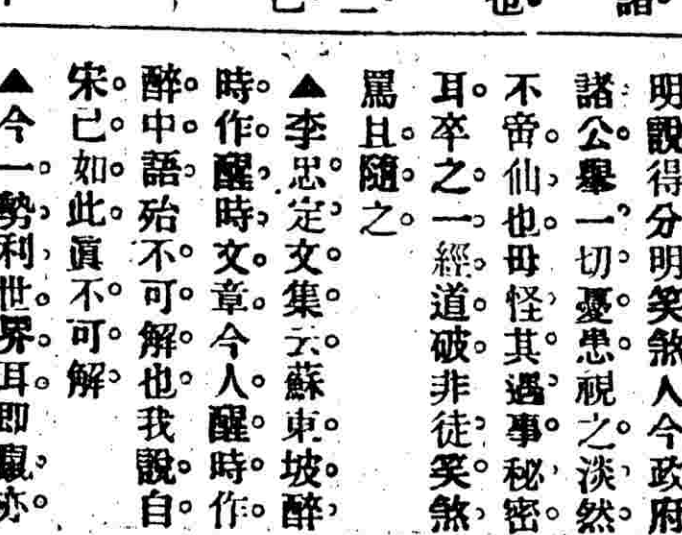 明說得分明笑煞人今政府
諸公舉一切憂患視之淡然
不啻仙也毋怪其遇事秘密
耳卒之一經道破非徒笑煞
罵且隨之
▲李忠定文集云蘇東坡醉
時作醒時文章今人醒時作
醉中語殆不可解也我說自
宋已如此眞不可解
▲今一勢利世界耳即